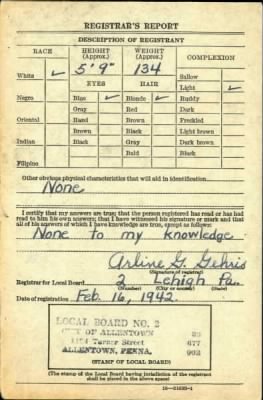 REGISTRAR'S REPORT
DESCRIPTION OF REGISTRANT
RACE
HEIGHT (Approx.)
WEIGHT (Approx.)
COMPLEXION
5' 9"
134
White ✓
Sallow
EYES
HAIR
Light ✓
Negro
Blue ✓
Blonde ✓
Ruddy
Gray
Red
Dark
Oriental
Hazel
Brown
Freckled
Brown
Black
Light brown
Indian
Black
Gray
Dark brown
Bald
Black
Filipino
Other obvious physical characteristics that will aid in identification
None
I certify that my answers are true; that the person registered has read or has had
read to him his own answers; that I have witnessed his signature or mark and that
all of his answers of which I have knowledge are true, except as follows:
None to my knowledge
Arline G. Gehris
(Signature of registrar)
Registrar for Local Board 2 Lehigh Pa.
(Number) (City or county) (State)
Date of registration Feb. 16, 1942
LOCAL BOARD NO. 2
CITY OF ALLENTOWN
Turner Street 677
ALLENTOWN, PENNA. 002
(STAMP OF LOCAL BOARD)
(The stamp of the Local Board having jurisdiction of the registrant
shall be placed in the above space)